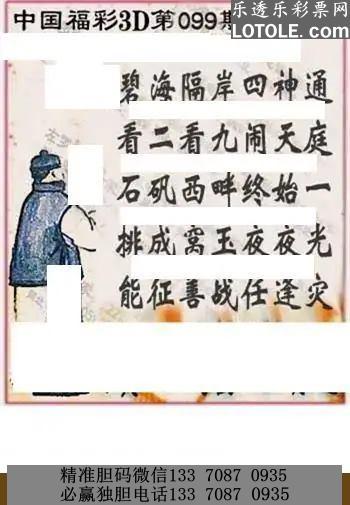 中国福彩3D第099期
乐透乐彩票网
LOTOLE.COM
碧海隔岸四神通
看二看九闹天庭
石矶西畔终始一
排成窝玉夜夜光
能征善战任逢灾
精准胆码微信133 7087 0935
必赢独胆电话133 7087 0935